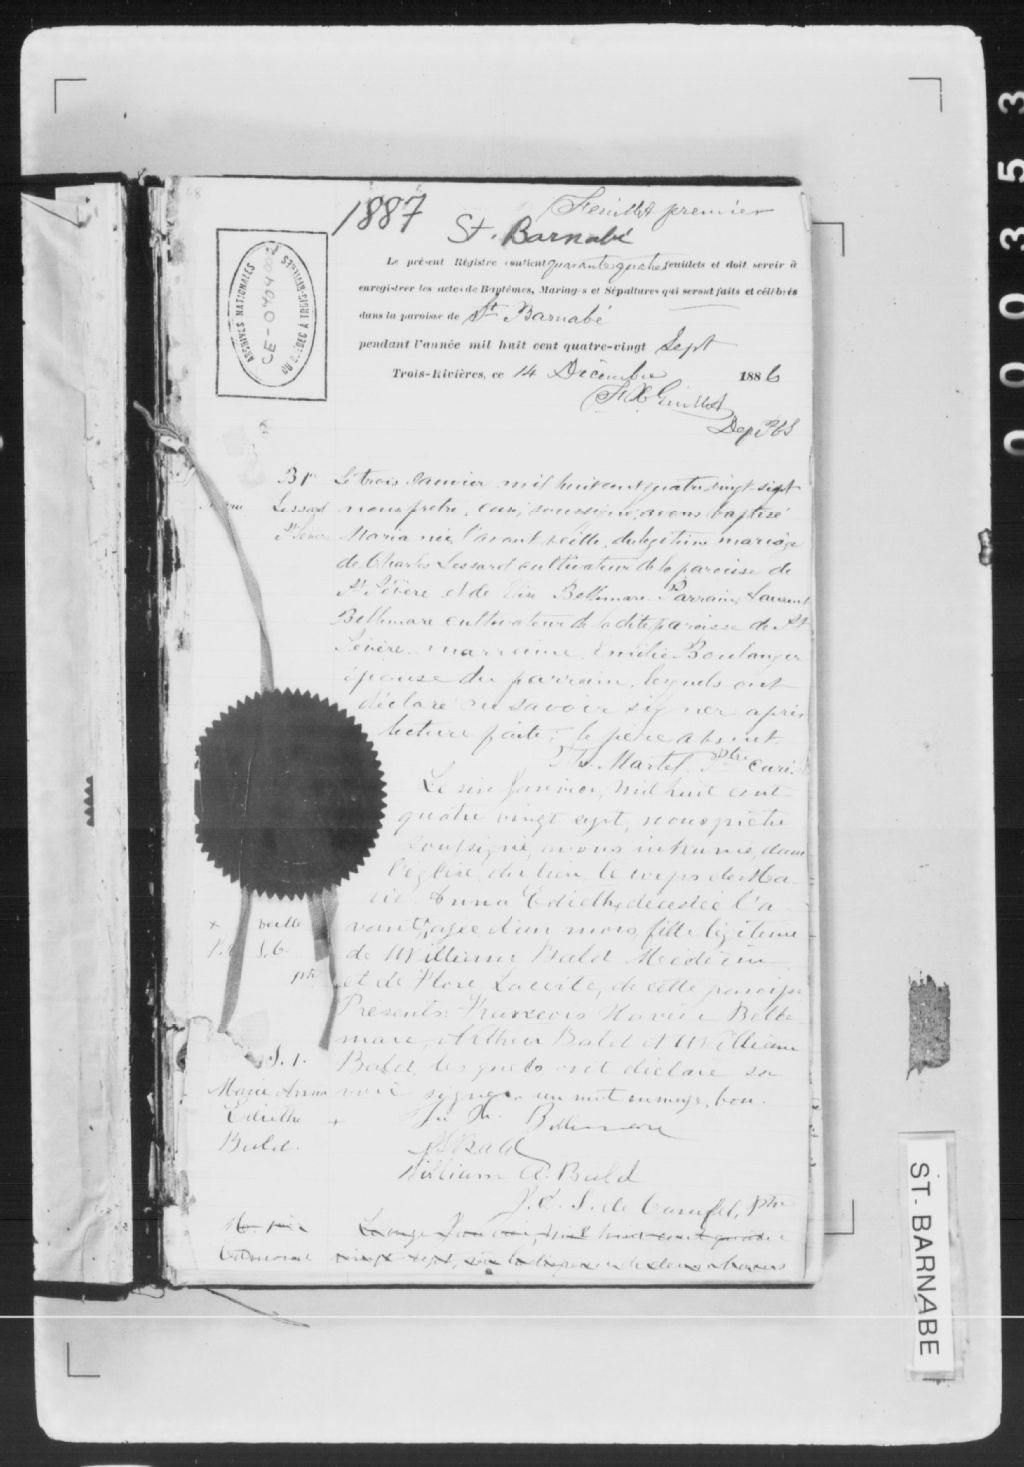 Feuillet premier
1887
St. Barnabé
Le présent Régistre contient quarante quatre feuillets et doit servir à
enregistrer les actes de Baptêmes, Mariages et Sépultures qui seront faits et célébrés
dans la paroisse de St Barnabé
pendant l'année mil huit cent quatre-vingt Sept
Trois-Rivières, ce 14 Décembre 1886
F. X. Guillet
Dep
ARCHIVES NATIONALES
DU QUÉBEC À TROIS-RIVIÈRES
Le trois Janvier mil huit cent quatre vingt sept
Lessard
nous prêtre, curé, soussigné, avons baptisé
Maria née l'avant veille, du légitime mariage
de Charles Lessard cultivateur de la paroisse de
St Sévère et de Elise Bellemare. Parrain, Laurent
Bellemare cultivateur de la dite paroisse de St
Sévère, marraine, Emilie Boulanger
épouse du parrain, lesquels ont
déclaré ne savoir signer après
lecture faite; le père absent.
Martel Ptre Curé
Le six Janvier, mil huit cent
quatre vingt sept, nous prêtre
soussigné, avons inhumé, dans
l'église du lieu, le corps de Ma
rie Anna Edithe décédée l'a
vant, agée d'un mois, fille légitime
+ veille
de William Bald Médecin
ptre
et de Flore Lacerte, de cette paroisse
Présents: François Xavier Belle
mare, Arthur Bald et William
S. 1.
Bald, lesquels ont déclaré sa
Marie Anna
voir signer. un mot en marge, bon.
Edithe
Bald.
Bellemare
Bald
William A. Bald
J. E. S. de Carufel, ptre
Le onze Janvier, mil huit cent quatre
vingt sept,
ST-BARNABE
000353